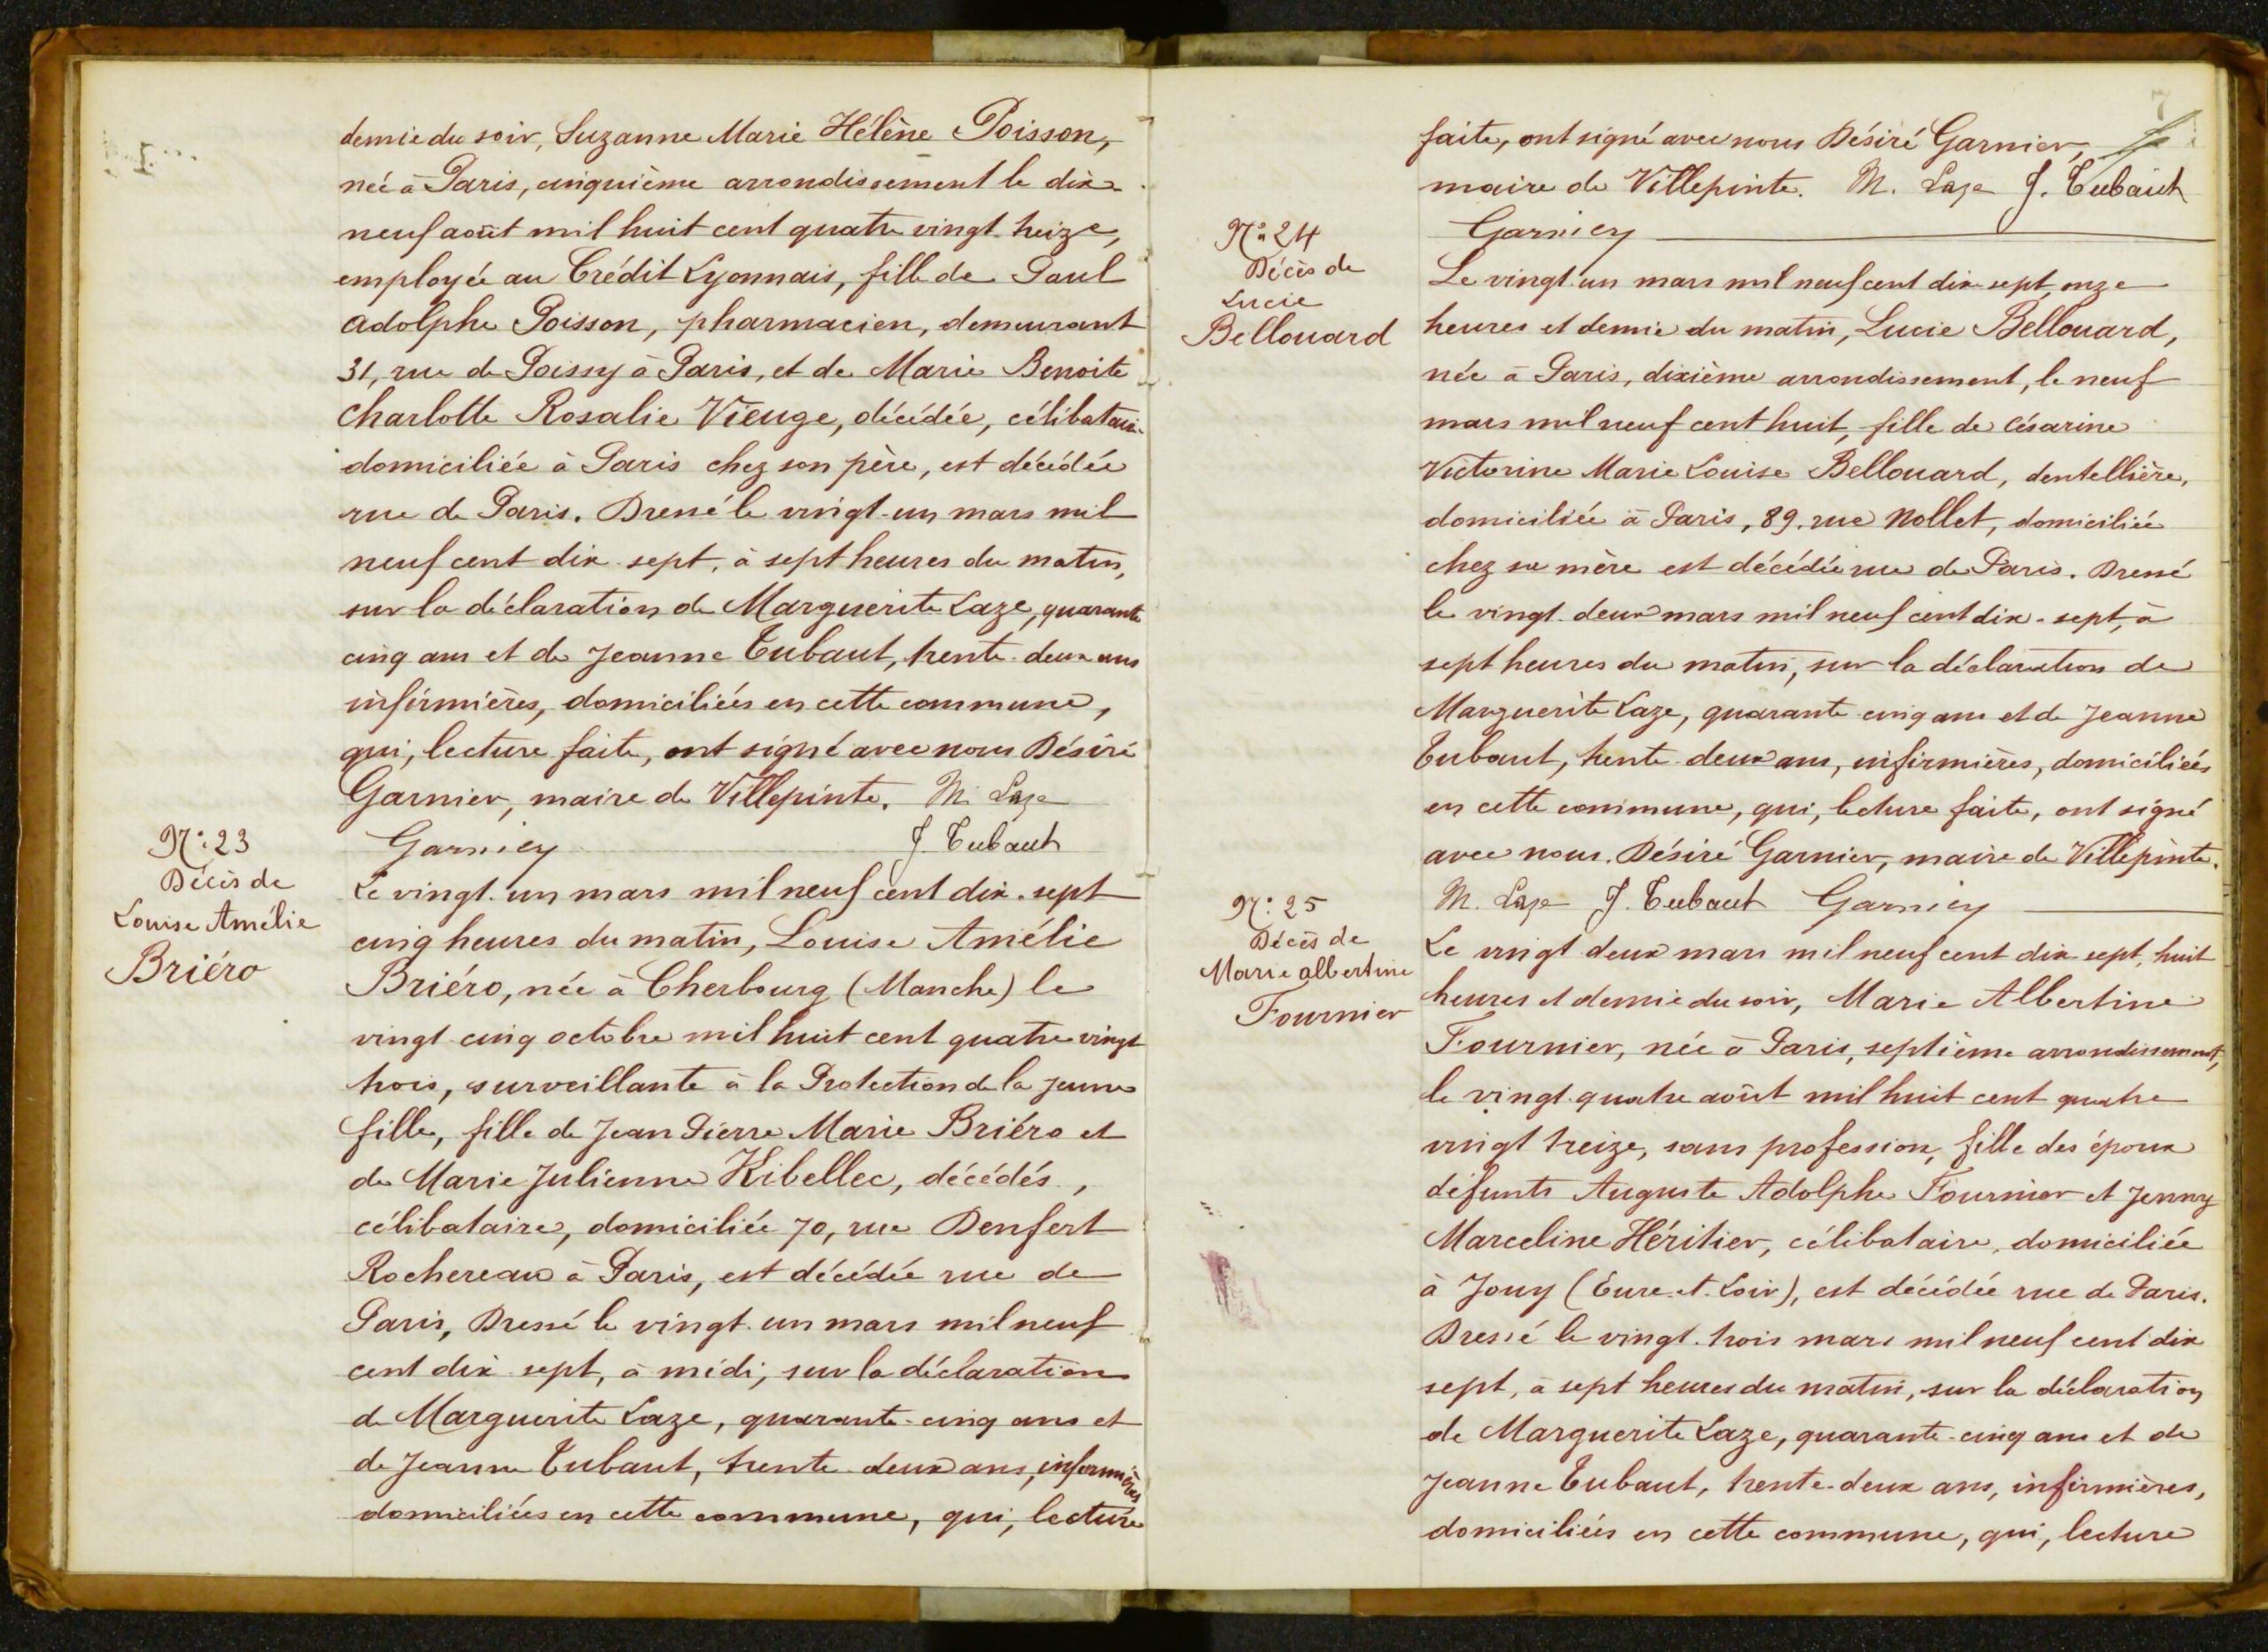 demie du soir, Suzanne Marie Hélène Poisson,
née à Paris, cinquième arrondissement le dix-
neuf août mil huit cent quatre vingt treize,
employée au Crédit Lyonnais, fille de Paul
Adolphe Poisson, pharmacien, demeurant
31, rue de Poissy à Paris, et de Marie Benoite
Charlotte Rosalie Vieuge, décédée, célibataire
domiciliée à Paris chez son père, est décédée
rue de Paris. Dressé le vingt-un mars mil
neuf cent dix-sept, à sept heures du matin,
sur la déclaration de Marguerite Laze, quarante
cinq ans et de Jeanne Tubaut, trente-deux ans
infirmières, domiciliées en cette commune,
qui, lecture faite, ont signé avec nous Désiré
Garnier, maire de Villepinte. M. Laze
Garnier J. Tubaut
N° 23
Décès de
Louise Amélie
Briéro
Le vingt-un mars mil neuf cent dix-sept
cinq heures du matin, Louise Amélie
Briéro, née à Cherbourg (Manche) le
vingt-cinq octobre mil huit cent quatre vingt
trois, surveillante à la Protection de la jeune
fille, fille de Jean Pierre Marie Briéro et
de Marie Julienne Kibellec, décédés,
célibataire, domiciliée 70, rue Denfert
Rochereau à Paris, est décédée rue de
Paris, Dressé le vingt-un mars mil neuf
cent dix-sept, à midi, sur la déclaration
de Marguerite Laze, quarante-cinq ans et
de Jeanne Tubaut, trente-deux ans, infirmières
domiciliées en cette commune, qui, lecture
7
faite, ont signé avec nous Désiré Garnier,
maire de Villepinte. M. Laze J. Tubaut
Garnier
N° 24
Décès de
Lucie
Bellouard
Le vingt-un mars mil neuf cent dix-sept, onze
heures et demie du matin, Lucie Bellouard,
née à Paris, dixième arrondissement, le neuf
mars mil neuf cent huit, fille de Césarine
Victorine Marie Louise Bellouard, dentellière,
domiciliée à Paris, 89, rue Nollet, domiciliée
chez sa mère est décédée rue de Paris. Dressé
le vingt-deux mars mil neuf cent dix-sept, à
sept heures du matin, sur la déclaration de
Marguerite Laze, quarante-cinq ans et de Jeanne
Tubaut, trente-deux ans, infirmières, domiciliées
en cette commune, qui, lecture faite, ont signé
avec nous. Désiré Garnier, maire de Villepinte.
M. Laze J. Tubaut Garnier
N° 25
Décès de
Marie Albertine
Fournier
Le vingt-deux mars mil neuf cent dix-sept, huit
heures et demie du soir, Marie Albertine
Fournier, née à Paris, septième arrondissement,
le vingt-quatre août mil huit cent quatre
vingt treize, sans profession, fille des époux
défunts Auguste Adolphe Fournier et Jenny
Marceline Héritier, célibataire, domiciliée
à Jouy (Eure-et-Loir), est décédée rue de Paris.
Dressé le vingt-trois mars mil neuf cent dix
sept, à sept heures du matin, sur la déclaration
de Marguerite Laze, quarante-cinq ans et de
Jeanne Tubaut, trente-deux ans, infirmières,
domiciliées en cette commune, qui, lecture